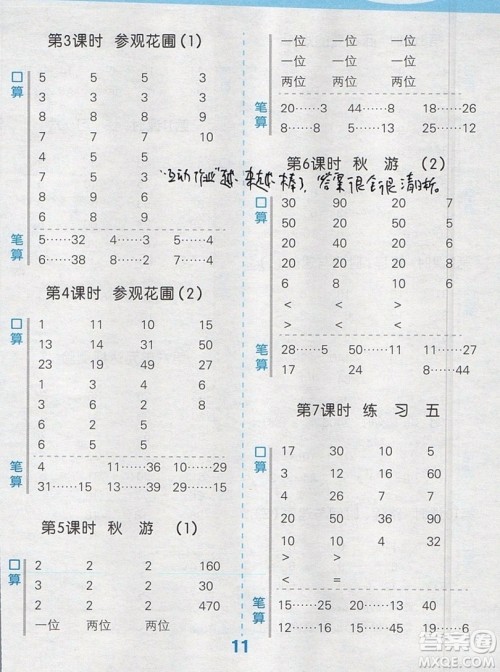 第3课时 参观花圃(1)
口算
5 5 5 3
3 3 3 3
8 8 8 9
5 7 6 7
3 9 7 8
6 7 8 9
8 9 8 6
笔算
5……43 5……4 5……4
6……38 8……2 7……4
第4课时 参观花圃(2)
口算
1 11 10 15
13 14 31 50
23 19 49 27
1 3 3 3
6 5 4 6
2 5 6
6 5 5
笔算
4 11……36 10……29
31……15 13……19 15……29
第5课时 秋 游 (1)
口算
2 2 2 160
3 2 2 220
3 2 2 470
一位 两位 两位
一位 一位 一位
一位 一位 一位
两位 两位 两位
笔算
20……3 44……8 18……26
8……8 5……13 11……26
第6课时 秋 游 (2)
"互动作业"越来越棒了,答案很全很清晰。
口算
30 90 20 20
50 20 20 50
20 40 40 60
3 6 7 4
< < <
< > >
笔算
28……5 51……10 11……51
17 24 8……44
第7课时 练 习 五
口算
17 30 10 5
3 12 4 60
4 7 6 90
20 50 90 100
20 36 8 4
> >
< =
笔算
15……25 33……10 20……10
12……45 19……15 47
11
答案圈
MXQE.COM